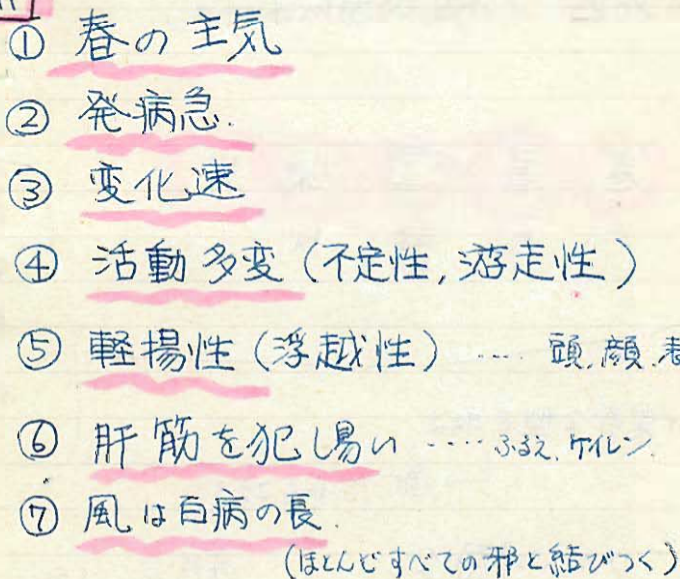 ① 春の主気
② 発病急.
③ 変化速
④ 活動多変 (不定性, 游走性)
⑤ 軽揚性 (浮越性) .... 頭, 顔,
⑥ 肝筋を犯し易い ....ふるえ, ケイレン.
⑦ 風は百病の長.
(ほとんどすべての邪と結びつく)